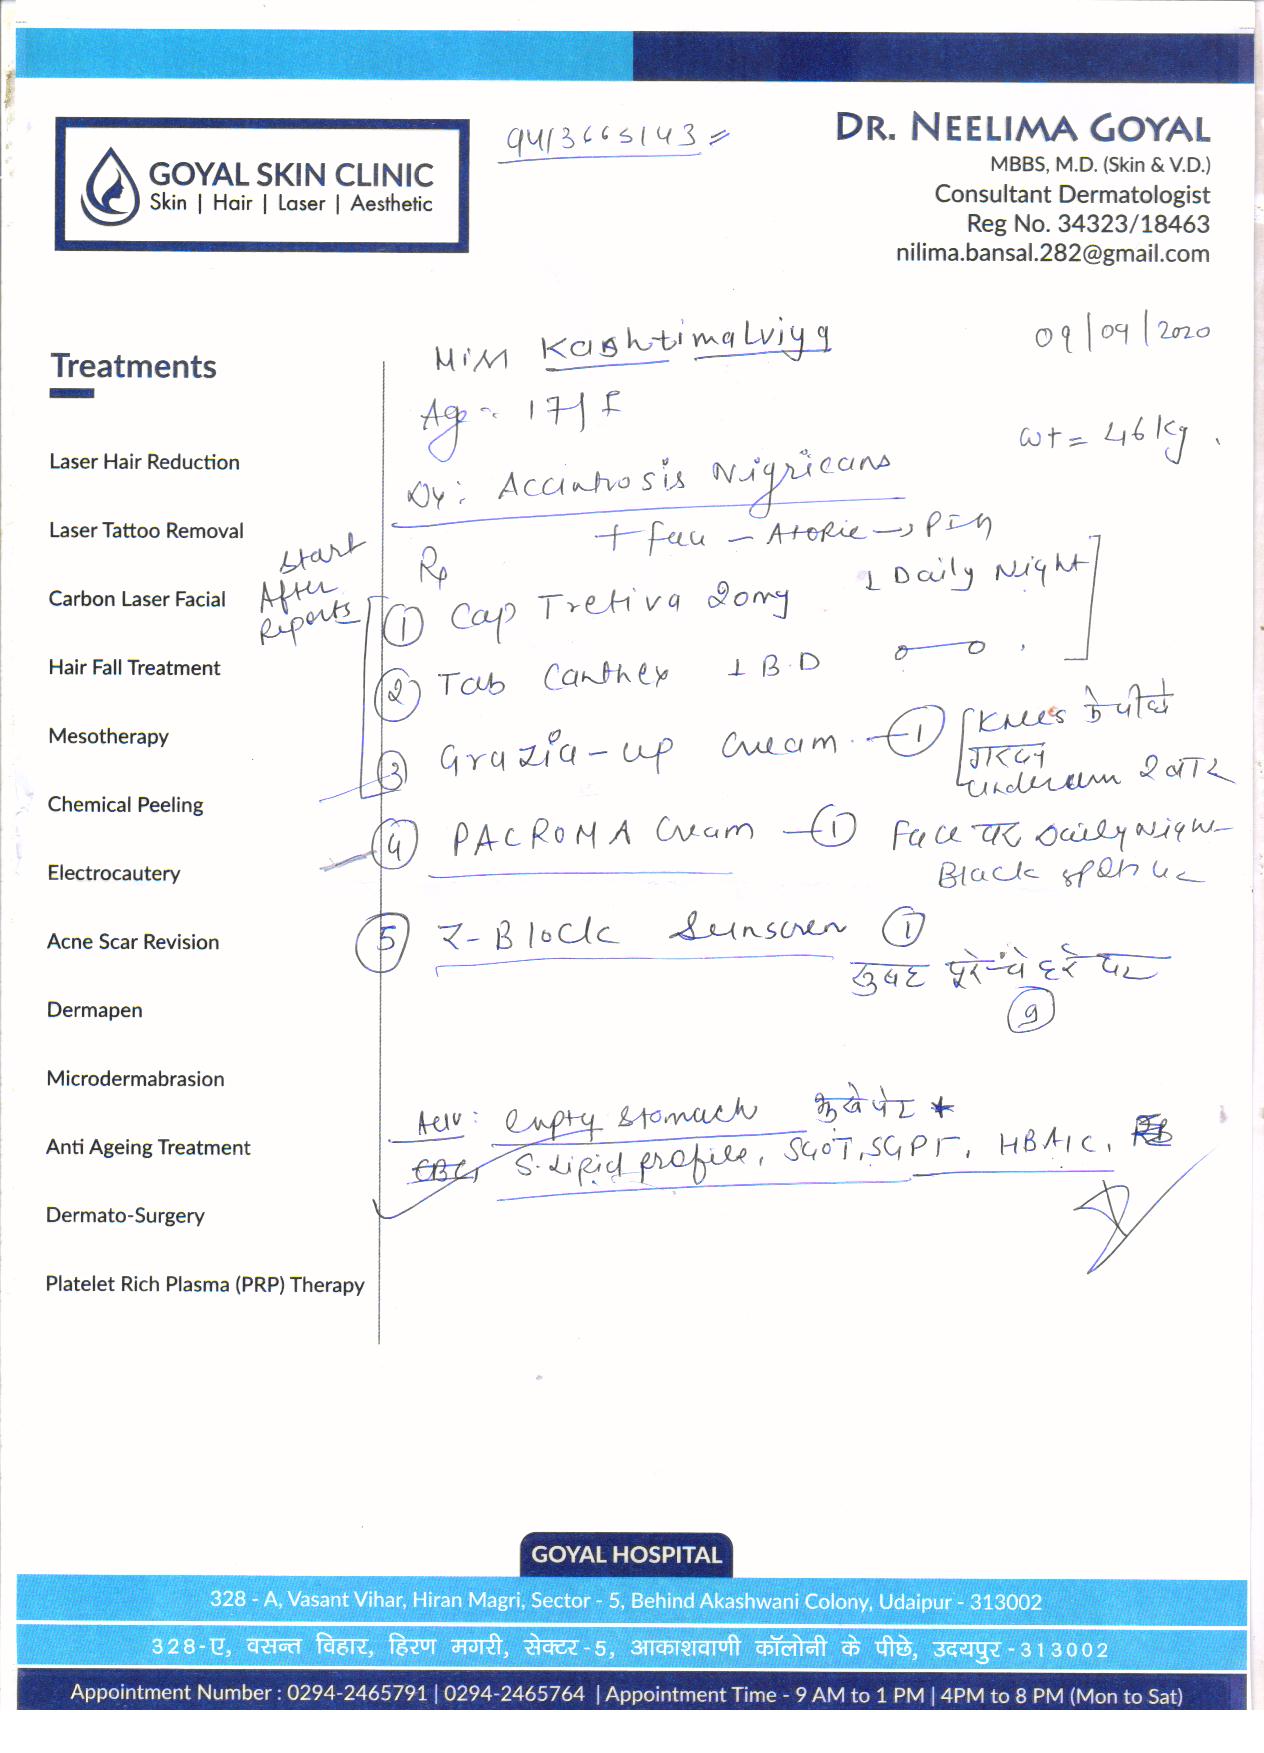 GOYAL SKIN CLINIC
Skin | Hair | Laser | Aesthetic
9413665143
DR. NEELIMA GOYAL
MBBS, M.D. (Skin & V.D.)
Consultant Dermatologist
Reg No. 34323/18463
nilima.bansal.282@gmail.com
09/09/2020
Kashtimalviya
Age 17/F
wt = 46 kg
Nigricans
+ face - Atopic → PIH
Start
After
Reports
Rx
① Cap Tretiva 20mg 1 Daily Night
② Tab Canthex 1 B.D
③ Grazia-up cream - ① Knees के पीछे
गर्दन
underarm 2 बार
④ PACROMA Cream - ① Face पर Daily Night
Black
⑤ Z-Block Sunscreen ①
सुबह पूरे चेहरे पर
⑨
Adv: empty stomach भूखे पेट *
CBC, S. Lipid profile, SGOT, SGPT, HBA1C,
Treatments
Laser Hair Reduction
Laser Tattoo Removal
Carbon Laser Facial
Hair Fall Treatment
Mesotherapy
Chemical Peeling
Electrocautery
Acne Scar Revision
Dermapen
Microdermabrasion
Anti Ageing Treatment
Dermato-Surgery
Platelet Rich Plasma (PRP) Therapy
GOYAL HOSPITAL
328 - A, Vasant Vihar, Hiran Magri, Sector - 5, Behind Akashwani Colony, Udaipur - 313002
328-ए, वसन्त विहार, हिरण मगरी, सेक्टर-5, आकाशवाणी कॉलोनी के पीछे, उदयपुर-313002
Appointment Number : 0294-2465791 | 0294-2465764 | Appointment Time - 9 AM to 1 PM | 4PM to 8 PM (Mon to Sat)